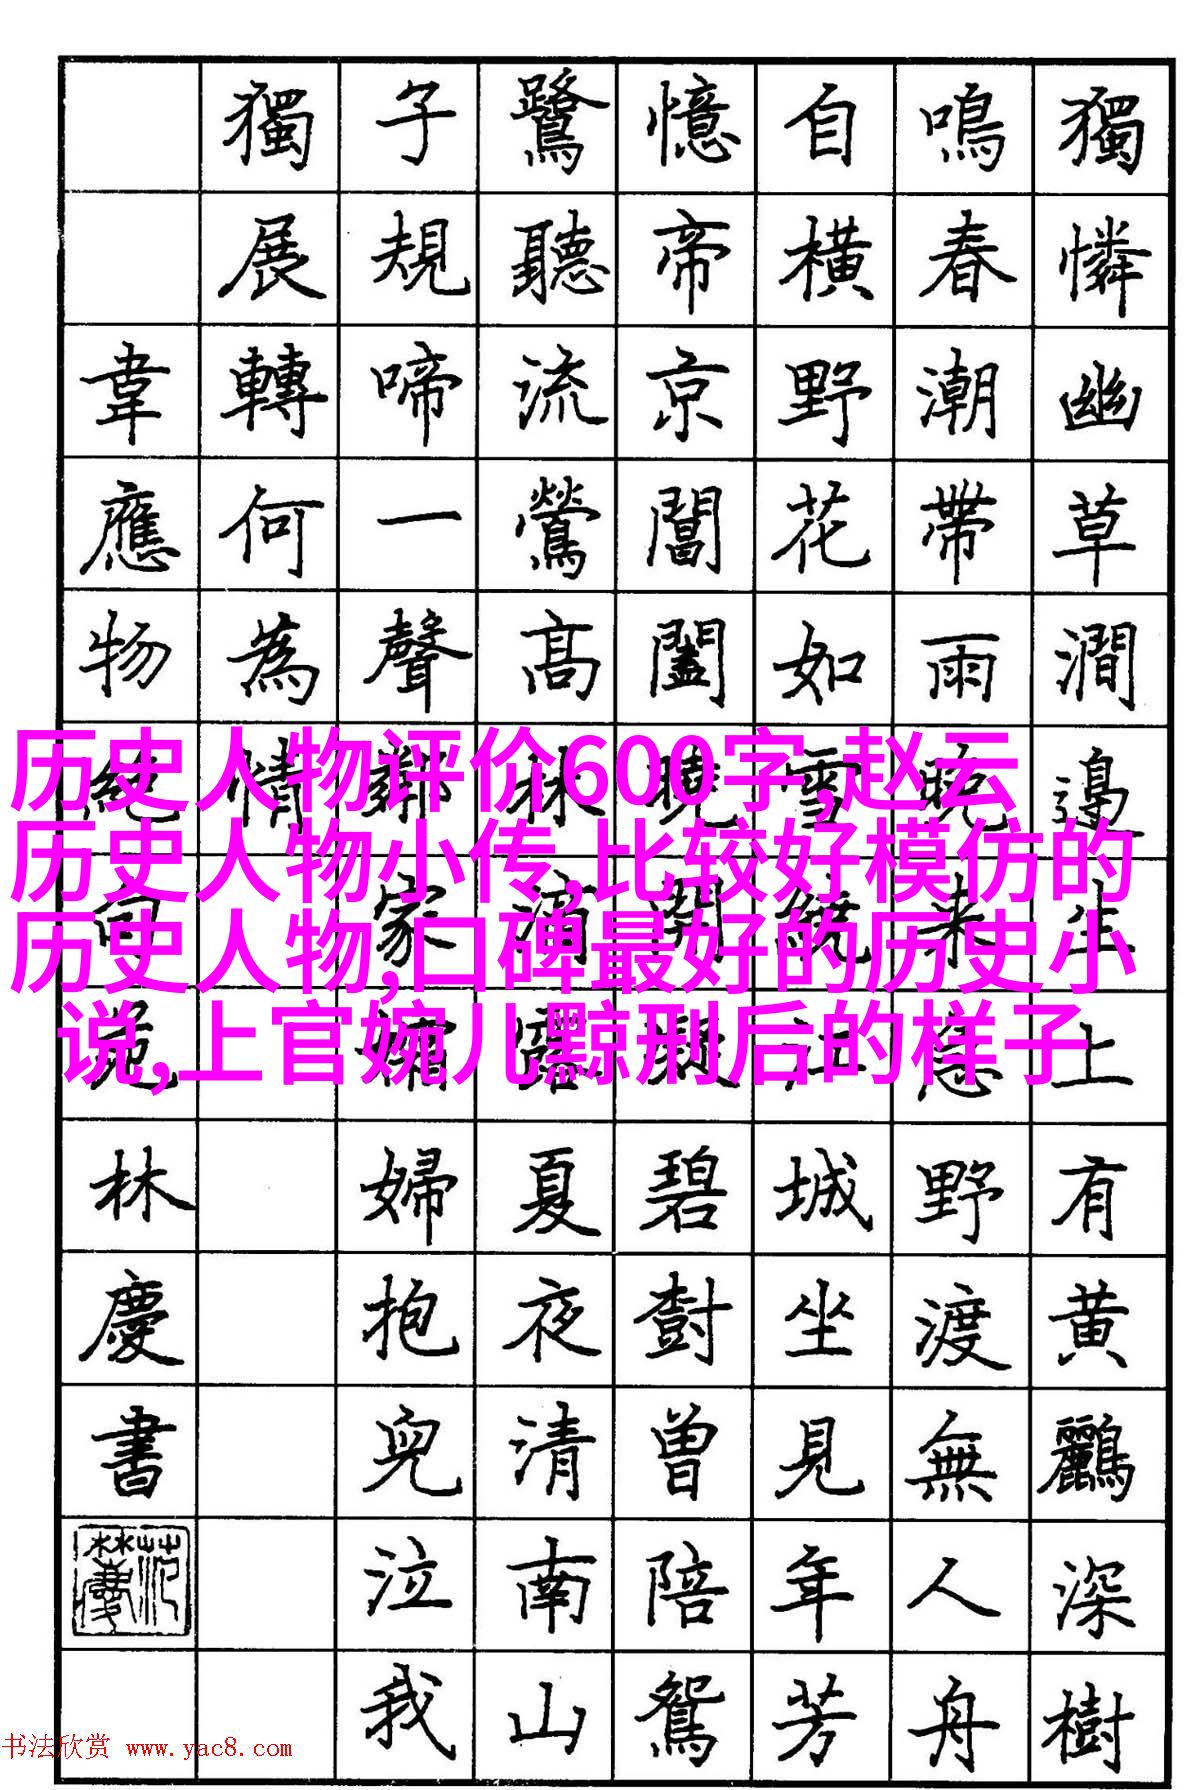 獨憐幽草澗邊生上有黄鸝深樹
鳴春潮帶雨晚来急野渡無人舟
自橫野花如雪繞江城坐見年芳
憶帝京閶闔曉開凝碧樹曾陪鴛
鷺聽流鶯髙林滴露夏夜清南山
子規啼一聲鄰家孀婦抱兒泣我
獨展轉何為情
韋應物絕句范林慶書
历史人物评价600字 赵云
历史人物小传,比较好模仿的
历史人物,口碑最好的历史小
说,上官婉儿黥刑后的样子
书法欣赏 www.yac8.com